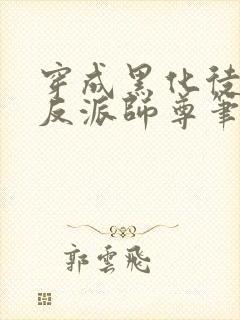 穿成黑化徒
反派師尊筆
郭雲飛